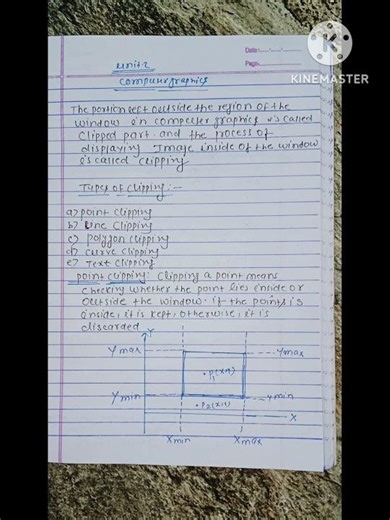 Date
Page
KINEMASTER
Unit-2
Computer graphics
The portion left outside the region of the
window in computer graphics is called
Clipped part and the process of
displaying Image inside of the window
is called clipping
Types of clipping:-
a) point clipping
b) Line clipping
c) polygon clipping
d) curve clipping
e) Text clipping
point clipping: clipping a point means
checking whether the point lies inside or
outside the window. if the points is
inside, it is kept, otherwise, it is
discarded
Y
Ymax
Ymax
Ymin
Ymin
X
Xmin
Xmax